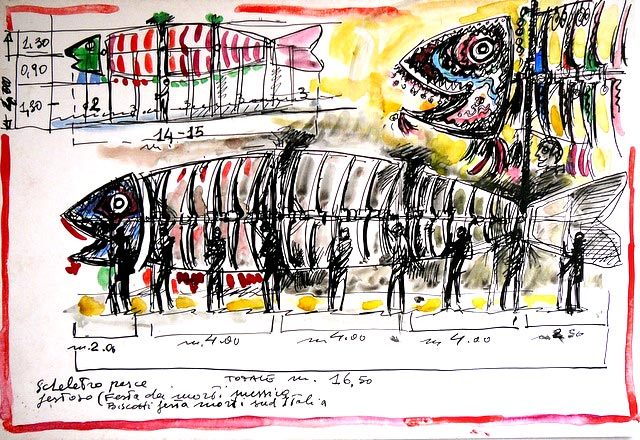 1,30
0,90
1,30
2
3
3
14-15
m.
m.2.0
m.4.00
m.4.00
m.4.00
m. 2 50
TOTALE m. 16,50
Scheletro pesce
festoso (Festa dei morti messico
Biscotti festa morti sud Italia